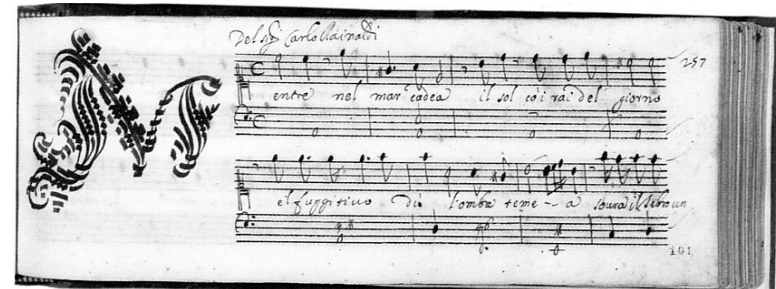 Del Sig.r Carlo Rainaldi
257
M
entre nel mar cadea il sol co i rai del giorno
el fuggitivo dì l'ombra teme - a soura il Lebro un
101